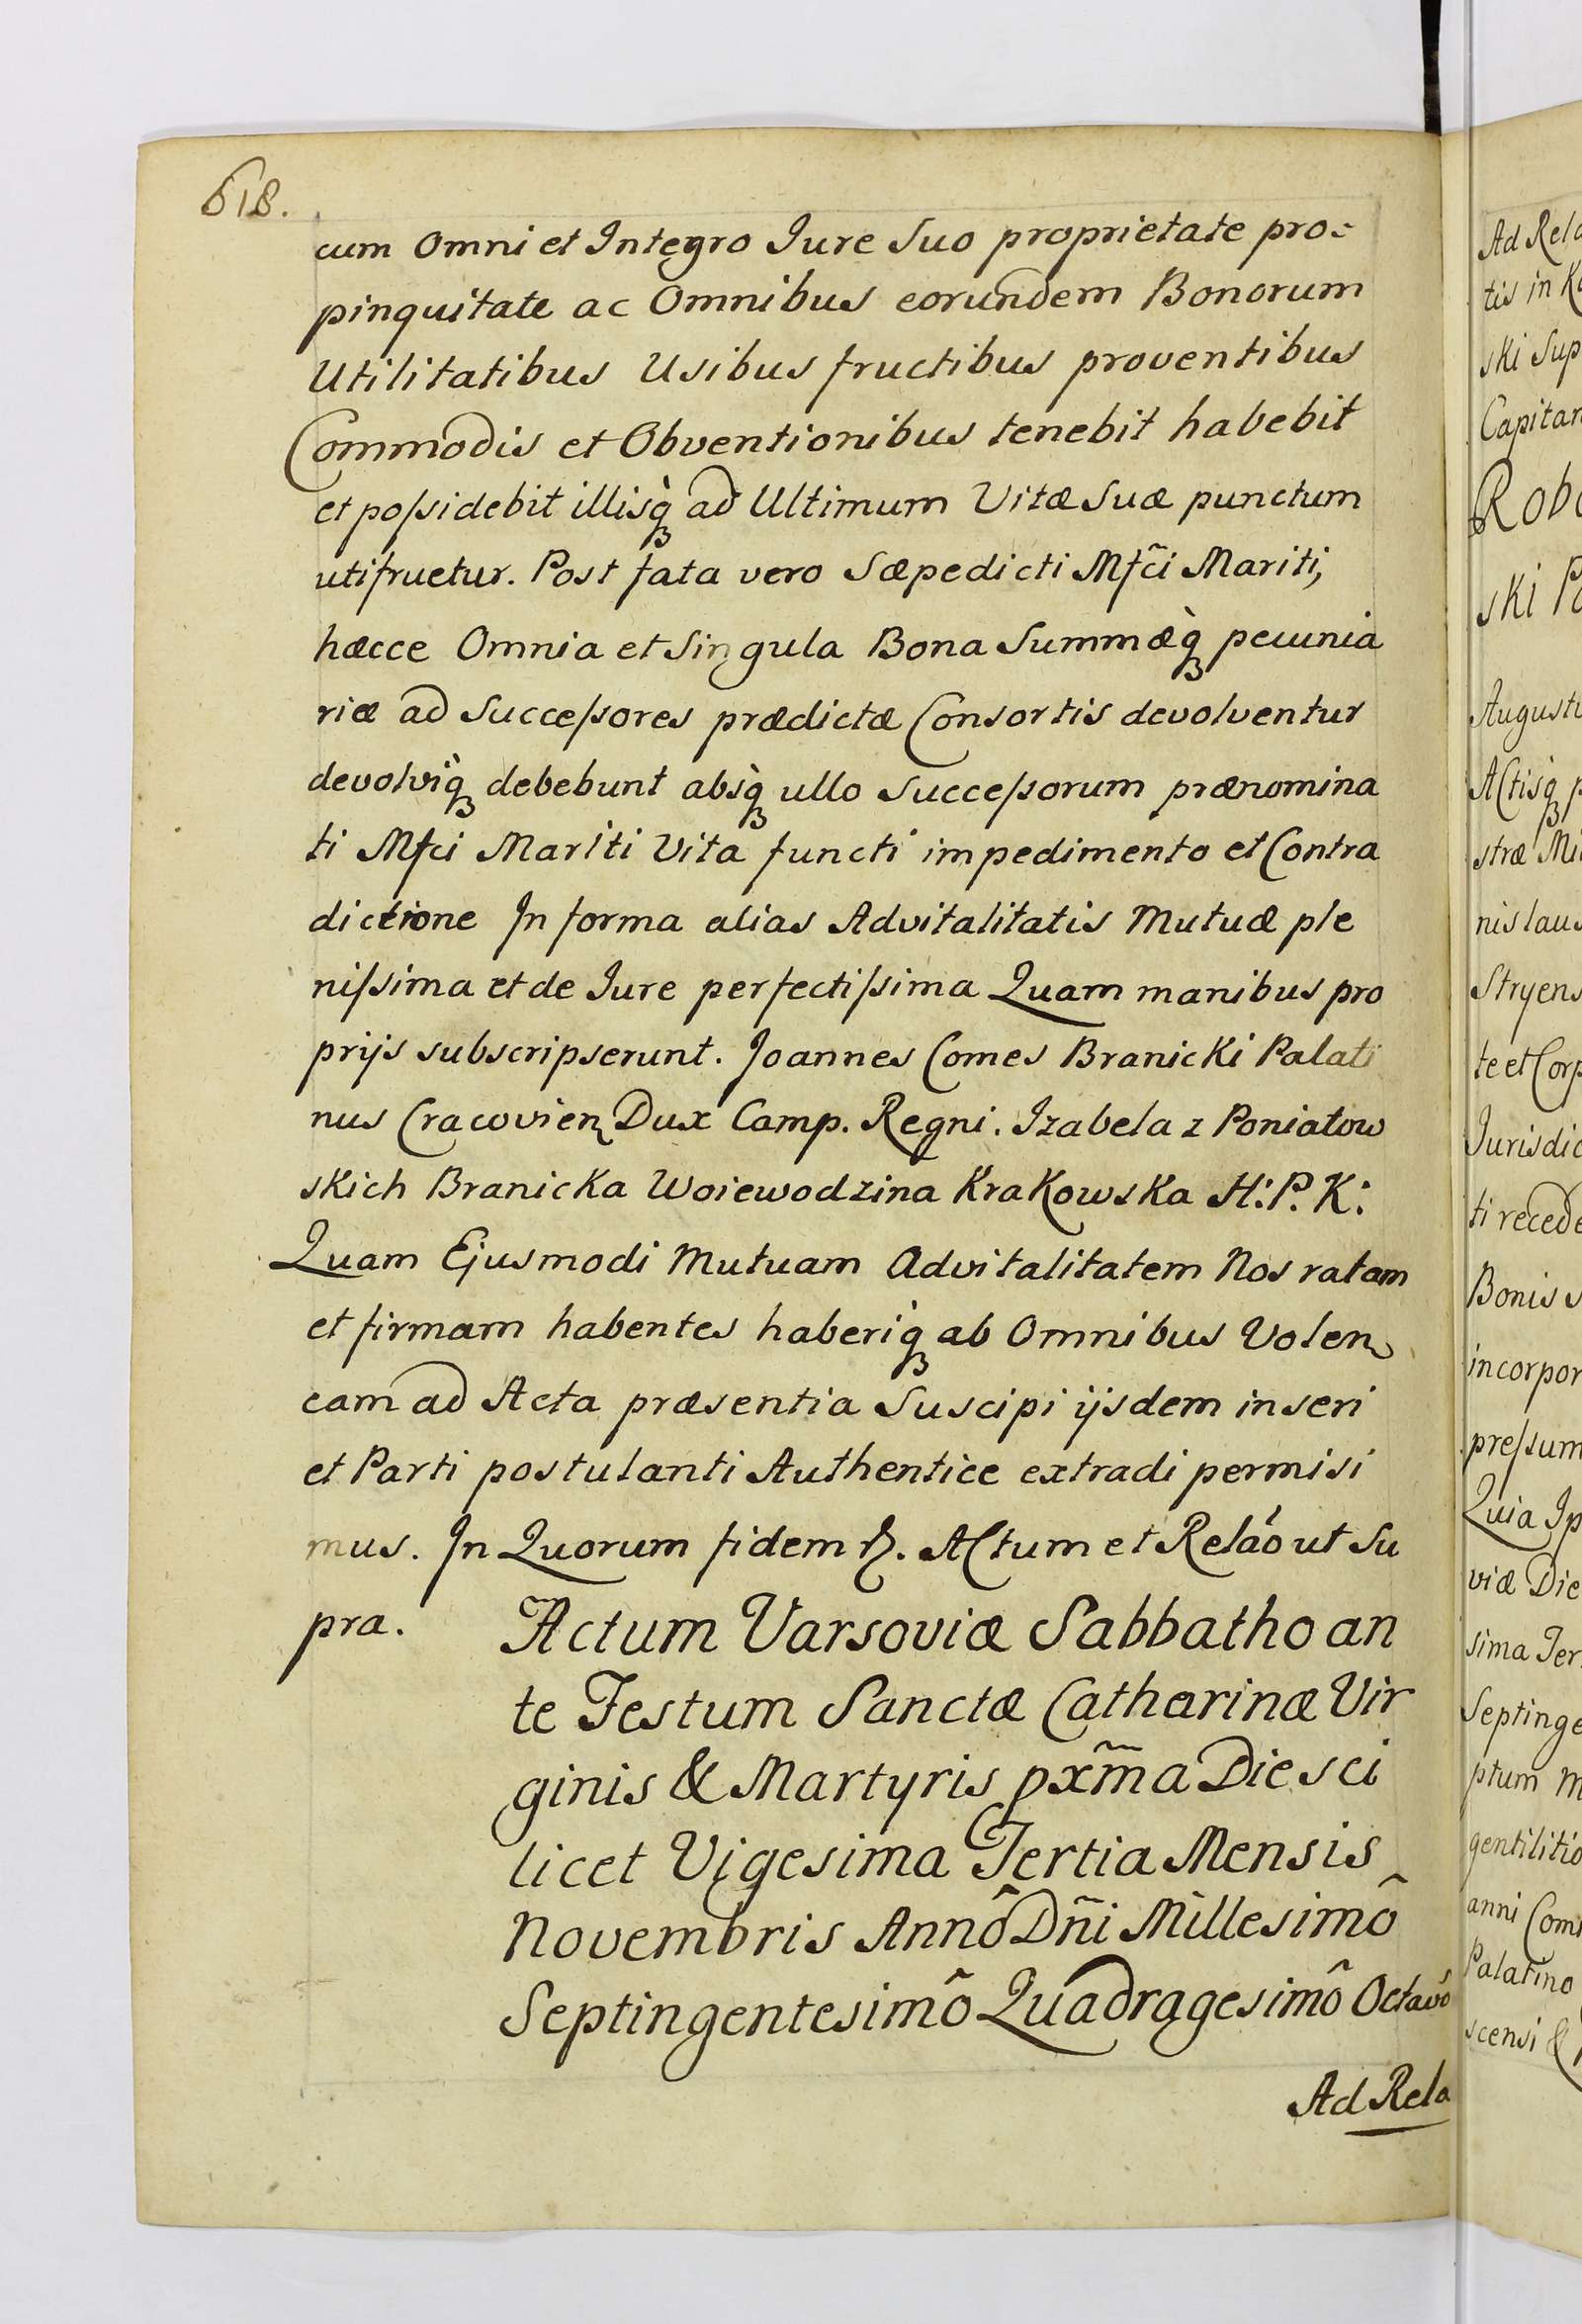 618.
cum Omni et Integro Jure Suo proprietate pro=
pinquitate ac Omnibus eorundem Bonorum
Utilitatibus Usibus fructibus proventibus
Commodis et Obventionibus tenebit habebit
et poſsidebit illisq̀ȝ ad Ultimum Vitæ Suæ punctum
utifruetur. Post fata vero Sæpedicti Mfc̃i Mariti,
hæcce Omnia et Singula Bona Summæq̀ȝ pecunia
riæ ad Succeſsores prædictæ Consortis devolventur
devolviq̀ȝ debebunt absq̀ȝ ullo Succeſsorum prænomina
ti Mfci Mariti Vita functi impedimento et Contra
dictione In forma alias Advitalitatis Mutuæ ple
niſsima et de Jure perfectiſsima Quam manibus pro
prijs subscripserunt. Joannes Comes Branicki Palati
nus Cracovien Dux Camp. Regni. Izabela z Poniatow
skich Branicka Woiewodzina Krakowska H: P. K:
Quam Ejusmodi Mutuam Advitalitatem Nos ratam
et firmam habentes haberiq̀ȝ ab Omnibus Volen
eam ad Acta præsentia Suscipi ijsdem inseri
et Parti postulanti Authentice extradi permisi
mus. In Quorum fidem ꝛ. Actum et Relaó ut Su
pra.
Actum Varsoviæ Sabbatho an
te Festum Sanctæ Catharinæ Vir
ginis & Martyris px̃ma Die sci
licet Vigesima Tertia Mensis
Novembris Annô Dñi Millesimô
Septingentesimô Quadragesimô Octavô
Ad Rela
Ad Rela
tis in K
ski Sup
Capitan
Rob
ski P
Augusti
Actisq̀ȝ p
stræ Mi
nislaus
Stryens
te et Corp
Jurisdic
ti recede
Bonis s
incorpor
preſsum
Quia Ip
viæ Die
sima Ter
Septinge
ptum m
gentilitio
anni Comi
Palatino
scensi &